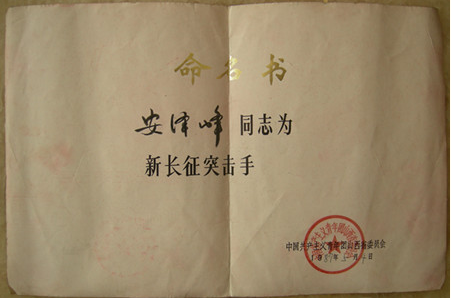 命名书
安泽峰 同志为
新长征突击手
中国共产主义青年团山西省委员会